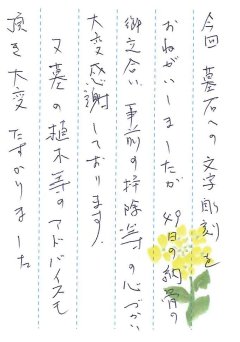 今回 墓石への文字彫刻を
おねがいしましたが 49日の納骨の
御立合い、事前の掃除等の心づかい
大変感謝しております。
又墓の植木等のアドバイスも
頂き大変たすかりました